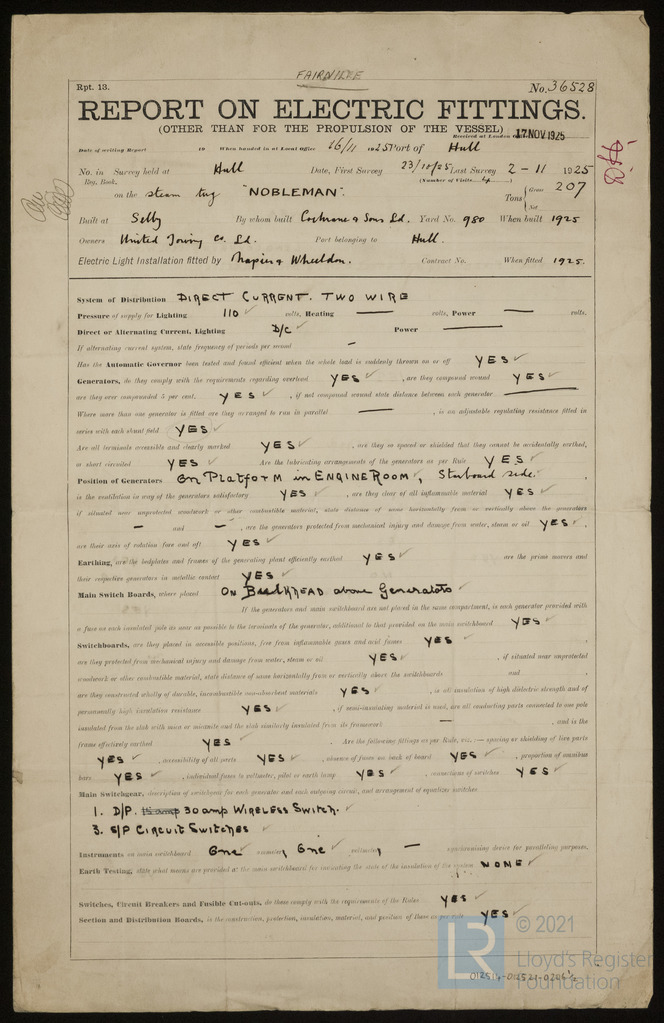 FAIRNILEE
Rpt. 13.
No. 36528
REPORT ON ELECTRIC FITTINGS.
(OTHER THAN FOR THE PROPULSION OF THE VESSEL)
Received at London 17 NOV 1925
Date of writing Report 19 When handed in at Local Office 16/11 1925 Port of Hull
No. in Survey held at Hull Date, First Survey 23/10/25 Last Survey 2-11 1925
Reg. Book. (Number of Visits 4)
on the steam tug "NOBLEMAN". Tons { Gross 207
Net
Built at Selby By whom built Cochrane & Sons Ld. Yard No. 980 When built 1925
Owners United Towing Co. Ld. Port belonging to Hull.
Electric Light Installation fitted by Napier & Wheeldon. Contract No. When fitted 1925.
System of Distribution DIRECT CURRENT. TWO WIRE
Pressure of supply for Lighting 110 volts, Heating — volts, Power — volts.
Direct or Alternating Current, Lighting D/C Power —
If alternating current system, state frequency of periods per second —
Has the Automatic Governor been tested and found efficient when the whole load is suddenly thrown on or off YES ✓
Generators, do they comply with the requirements regarding overload YES ✓, are they compound wound YES ✓
are they over compounded 5 per cent. YES ✓, if not compound wound state distance between each generator —
Where more than one generator is fitted are they arranged to run in parallel —, is an adjustable regulating resistance fitted in
series with each shunt field YES ✓
Are all terminals accessible and clearly marked YES ✓, are they so spaced or shielded that they cannot be accidentally earthed,
or short circuited YES ✓ Are the lubricating arrangements of the generators as per Rule YES ✓
Position of Generators On PLATFORM in ENGINE ROOM, Starboard side.
is the ventilation in way of the generators satisfactory YES ✓, are they clear of all inflammable material YES ✓
if situated near unprotected woodwork or other combustible material, state distance of same horizontally from or vertically above the generators
— and —, are the generators protected from mechanical injury and damage from water, steam or oil YES ✓,
are their axis of rotation fore and aft YES ✓
Earthing, are the bedplates and frames of the generating plant efficiently earthed YES ✓ are the prime movers and
their respective generators in metallic contact YES ✓
Main Switch Boards, where placed ON BULKHEAD above Generators ✓
If the generators and main switchboard are not placed in the same compartment, is each generator provided with
a fuse on each insulated pole as near as possible to the terminals of the generator, additional to that provided on the main switchboard YES ✓
Switchboards, are they placed in accessible positions, free from inflammable gases and acid fumes YES ✓
are they protected from mechanical injury and damage from water, steam or oil YES ✓, if situated near unprotected
woodwork or other combustible material, state distance of same horizontally from or vertically above the switchboards and
are they constructed wholly of durable, incombustible non-absorbent materials YES ✓, is all insulation of high dielectric strength and of
permanently high insulation resistance YES ✓, if semi-insulating material is used, are all conducting parts connected to one pole
insulated from the slab with mica or micanite and the slab similarly insulated from its framework —, and is the
frame effectively earthed YES ✓. Are the following fittings as per Rule, viz.:— spacing or shielding of live parts
YES ✓, accessibility of all parts YES ✓, absence of fuses on back of board YES ✓, proportion of omnibus
bars YES ✓, individual fuses to voltmeter, pilot or earth lamp YES ✓, connections of switches YES ✓
Main Switchgear, description of switchgear for each generator and each outgoing circuit, and arrangement of equaliser switches
1. D/P. 15 amp 30 amp WIRELESS SWITCH. ✓
3. S/P CIRCUIT SWITCHES ✓
Instruments on main switchboard One ammeter, One voltmeter, — synchronising device for paralleling purposes.
Earth Testing, state what means are provided at the main switchboard for indicating the state of the insulation of the system NONE ✓
Switches, Circuit Breakers and Fusible Cut-outs, do these comply with the requirements of the Rules YES ✓
Section and Distribution Boards, is the construction, protection, insulation, material, and position of these as per rule YES ✓
© 2021
Lloyd's Register
Foundation